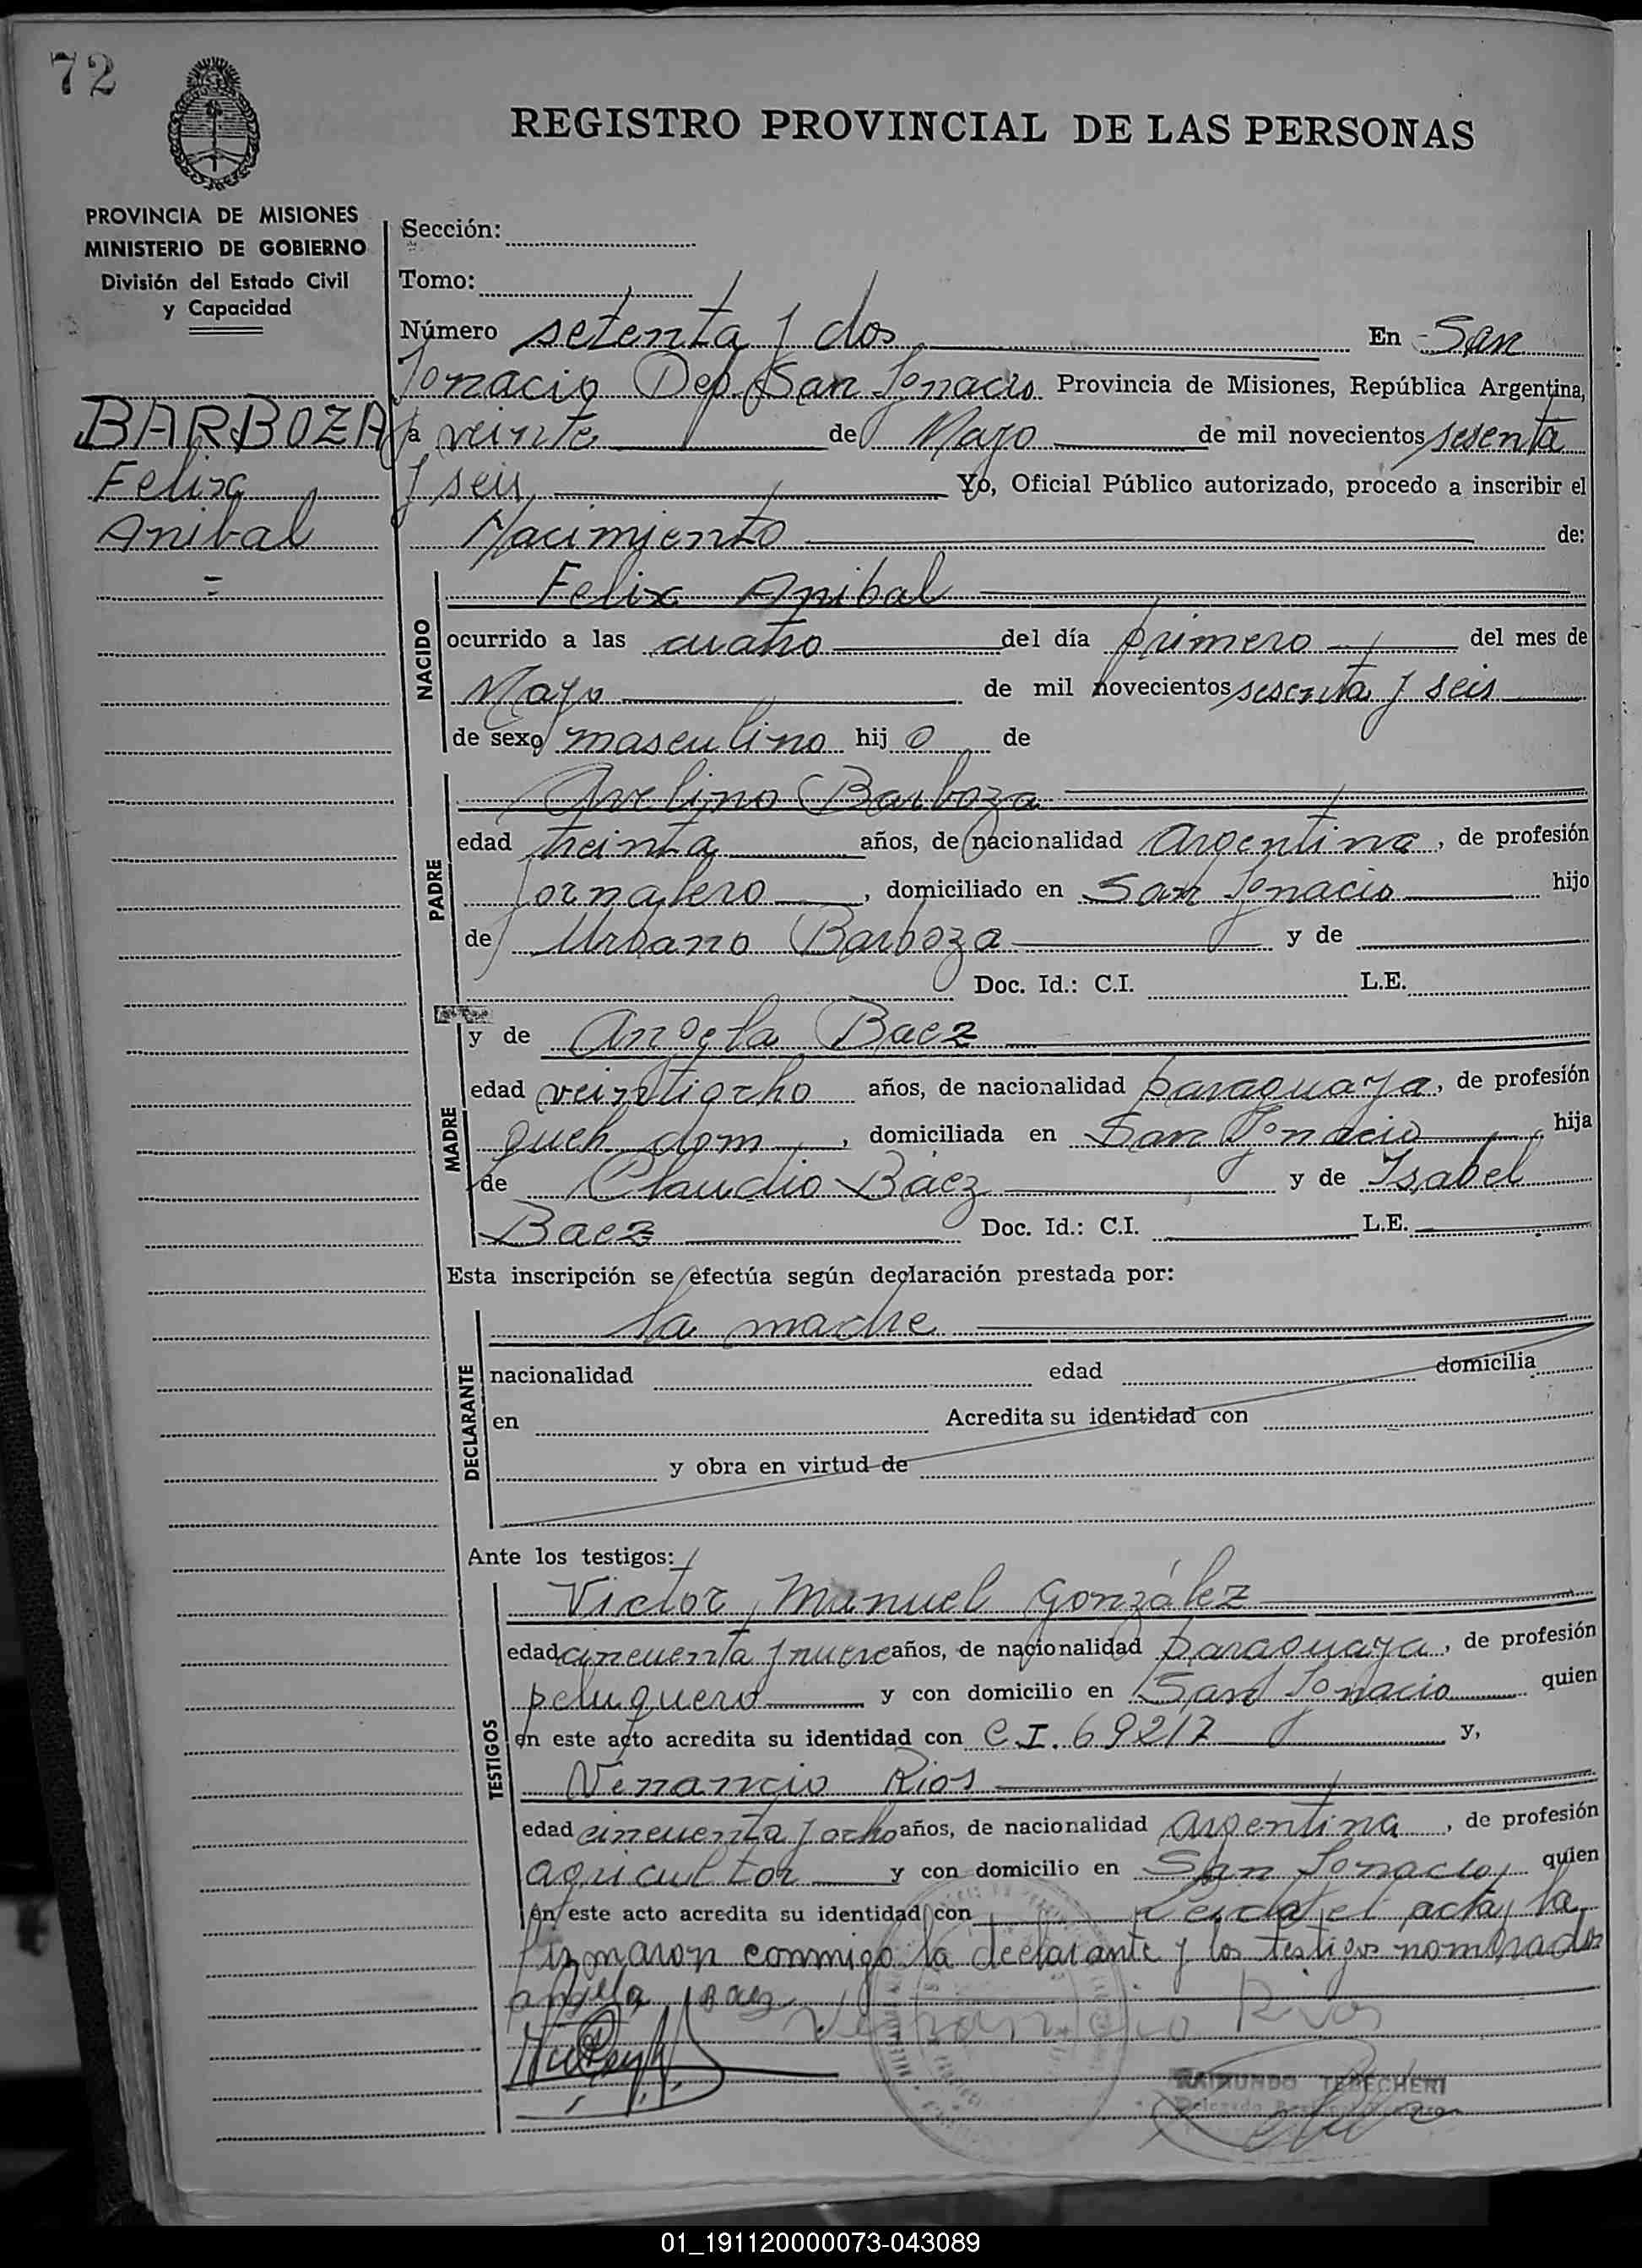 72
REGISTRO PROVINCIAL DE LAS PERSONAS
PROVINCIA DE MISIONES
MINISTERIO DE GOBIERNO
División del Estado Civil
y Capacidad
BARBOZA
Felix
Anibal
Sección:
Tomo:
Número setenta y dos En San
Ignacio Dep. San Ignacio Provincia de Misiones, República Argentina,
a veinte de Mayo de mil novecientos sesenta
y seis Yo, Oficial Público autorizado, procedo a inscribir el
Nacimiento de:
NACIDO
Felix Anibal
ocurrido a las cuatro del día primero del mes de
Mayo de mil novecientos sesenta y seis
de sexo masculino hijo de
PADRE
Avelino Barboza
edad treinta años, de nacionalidad Argentina, de profesión
Jornalero, domiciliado en San Ignacio hijo
de Urbano Barboza y de
Doc. Id.: C.I. L.E.
MADRE
y de Angela Baez
edad veintiocho años, de nacionalidad paraguaya, de profesión
queh. dom, domiciliada en San Ignacio hija
de Claudio Báez y de Isabel
Baez Doc. Id.: C.I. L.E.
Esta inscripción se efectúa según declaración prestada por:
DECLARANTE
la madre
nacionalidad edad domicilia
en Acredita su identidad con
y obra en virtud de
Ante los testigos:
TESTIGOS
Victor Manuel González
edad cincuenta y nueve años, de nacionalidad paraguaya, de profesión
peluquero y con domicilio en San Ignacio quien
en este acto acredita su identidad con C.I. 69217 y,
Venancio Rios
edad cincuenta y ocho años, de nacionalidad Argentina, de profesión
agricultor y con domicilio en San Ignacio quien
en este acto acredita su identidad con Leida el acta, la
firmaron conmigo la declarante y los testigos nombrados
Angela Baez
Venancio Rios
RAIMUNDO TEBECHERI
01_191120000073-043089